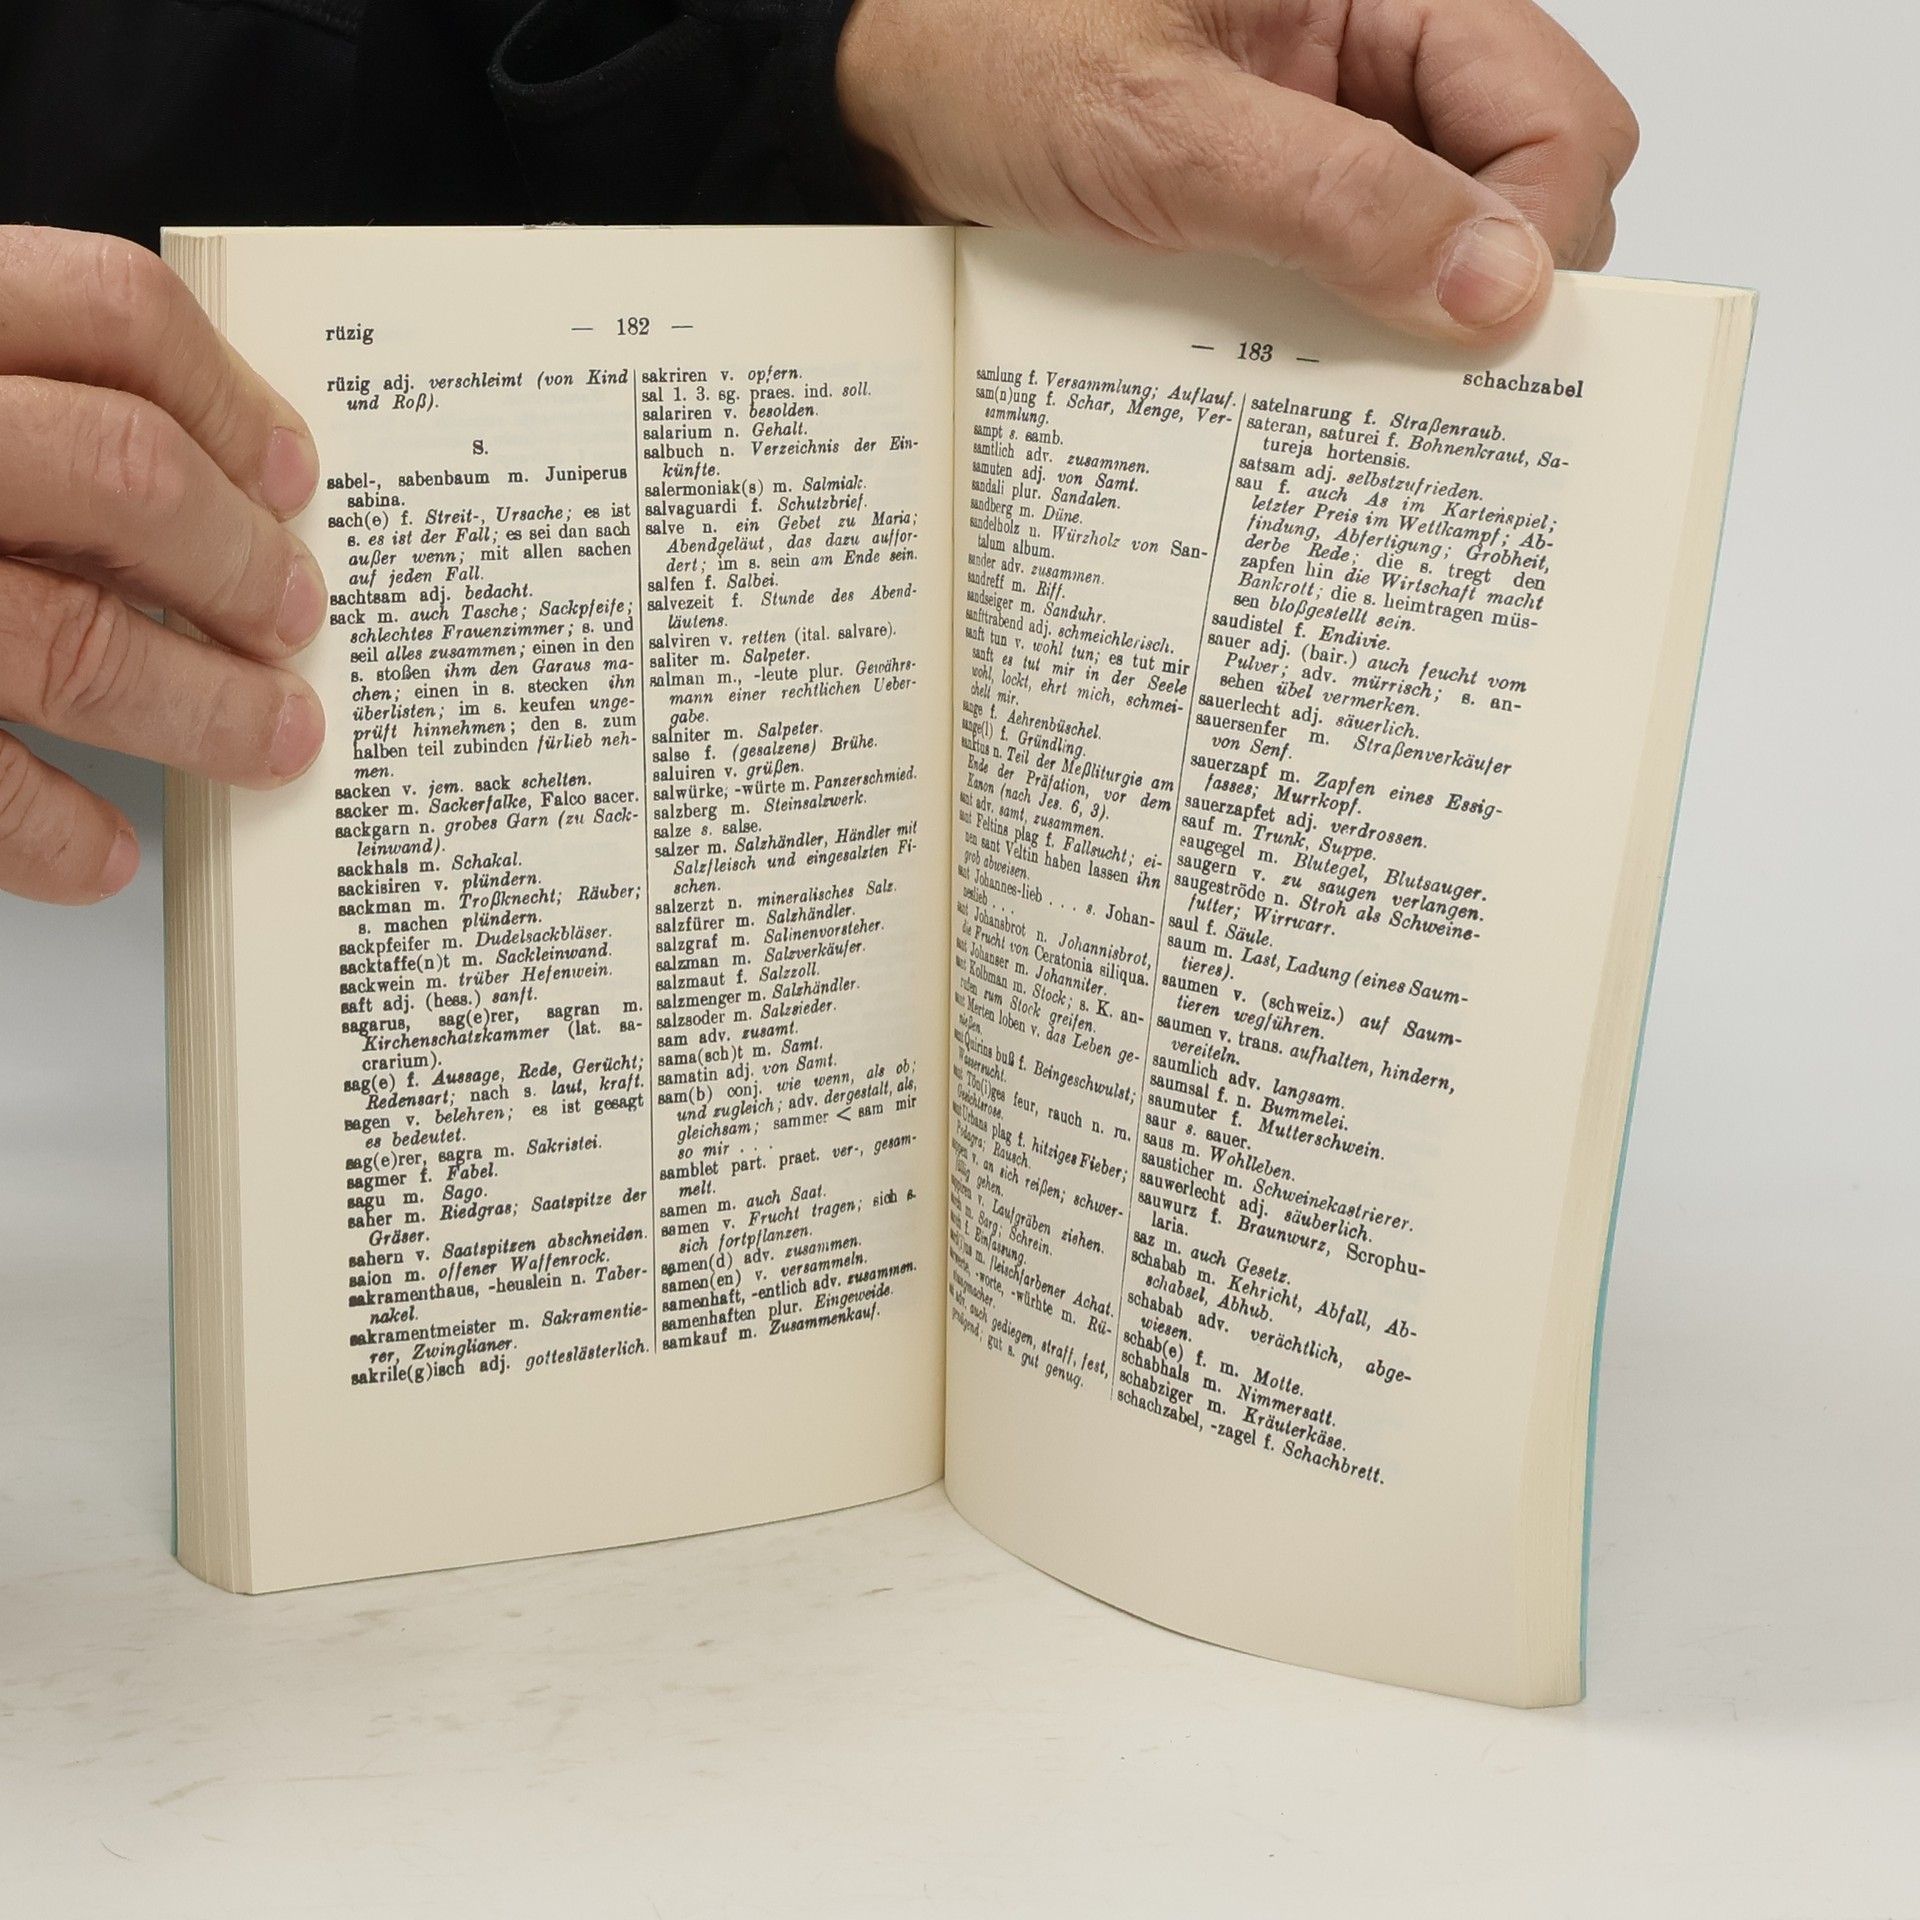 rüzig
— 182 —
rüzig adj. verschleimt (von Kind
und Roß).
S.
sabel-, sabenbaum m. Juniperus
sabina.
sach(e) f. Streit-, Ursache; es ist
s. es ist der Fall; es sei dan sach
außer wenn; mit allen sachen
auf jeden Fall.
sachtsam adj. bedacht.
sack m. auch Tasche; Sackpfeife;
schlechtes Frauenzimmer; s. und
seil alles zusammen; einen in den
s. stoßen ihm den Garaus ma-
chen; einen in s. stecken ihn
überlisten; im s. keufen unge-
prüft hinnehmen; den s. zum
halben teil zubinden fürlieb neh-
men.
sacken v. jem. sack schelten.
sacker m. Sackerfalke, Falco sacer.
sackgarn n. grobes Garn (zu Sack-
leinwand).
sackhals m. Schakal.
sackisiren v. plündern.
sackman m. Troßknecht; Räuber;
s. machen plündern.
sackpfeifer m. Dudelsackbläser.
sacktaffe(n)t m. Sackleinwand.
sackwein m. trüber Hefenwein.
saft adj. (hess.) sanft.
sagarus, sag(e)rer, sagran m.
Kirchenschatzkammer (lat. sa-
crarium).
sag(e) f. Aussage, Rede, Gerücht;
Redensart; nach s. laut, kraft.
sagen v. belehren; es ist gesagt
es bedeutet.
sag(e)rer, sagra m. Sakristei.
sagmer f. Fabel.
sagu m. Sago.
saher m. Riedgras; Saatspitze der
Gräser.
sahern v. Saatspitzen abschneiden.
saion m. offener Waffenrock.
sakramenthaus, -heuslein n. Taber-
nakel.
sakramentmeister m. Sakramentie-
rer, Zwinglianer.
sakrile(g)isch adj. gotteslästerlich.
sakriren v. opfern.
sal 1. 3. sg. praes. ind. soll.
salariren v. besolden.
salarium n. Gehalt.
salbuch n. Verzeichnis der Ein-
künfte.
salermoniak(s) m. Salmiak.
salvaguardi f. Schutzbrief.
salve n. ein Gebet zu Maria;
Abendgeläut, das dazu auffor-
dert; im s. sein am Ende sein.
salfen f. Salbei.
salvezeit f. Stunde des Abend-
läutens.
salviren v. retten (ital. salvare).
saliter m. Salpeter.
salman m., -leute plur. Gewährs-
mann einer rechtlichen Ueber-
gabe.
salniter m. Salpeter.
salse f. (gesalzene) Brühe.
saluiren v. grüßen.
salwürke, -würte m. Panzerschmied.
salzberg m. Steinsalzwerk.
salze s. salse.
salzer m. Salzhändler, Händler mit
Salzfleisch und eingesalzten Fi-
schen.
salzerzt n. mineralisches Salz.
salzfürer m. Salzhändler.
salzgraf m. Salinenvorsteher.
salzman m. Salzverkäufer.
salzmaut f. Salzzoll.
salzmenger m. Salzhändler.
salzsoder m. Salzsieder.
sam adv. zusamt.
sama(sch)t m. Samt.
samatin adj. von Samt.
sam(b) conj. wie wenn, als ob;
und zugleich; adv. dergestalt, als,
gleichsam; sammer < sam mir
so mir . . .
samblet part. praet. ver-, gesam-
melt.
samen m. auch Saat.
samen v. Frucht tragen; sich s.
sich fortpflanzen.
samen(d) adv. zusammen.
samen(en) v. versammeln.
samenhaft, -entlich adv. zusammen.
samenhaften plur. Eingeweide.
samkauf m. Zusammenkauf.
— 183 —
schachzabel
samlung f. Versammlung; Auflauf.
sam(n)ung f. Schar, Menge, Ver-
sammlung.
sampt s. samb.
samtlich adv. zusammen.
samuten adj. von Samt.
sandali plur. Sandalen.
sandberg m. Düne.
sandelholz n. Würzholz von San-
talum album.
sander adv. zusammen.
sandreff m. Riff.
sandseiger m. Sanduhr.
sanfttrabend adj. schmeichlerisch.
sanft tun v. wohl tun; es tut mir
sanft es tut mir in der Seele
wohl, lockt, ehrt mich, schmei-
chelt mir.
sange f. Aehrenbüschel.
sange(l) f. Gründling.
sanktus n. Teil der Meßliturgie am
Ende der Präfation, vor dem
Kanon (nach Jes. 6, 3).
sant adv. samt, zusammen.
sant Feltins plag f. Fallsucht; ei-
nen sant Veltin haben lassen ihn
grob abweisen.
sant Johannes-lieb . . . s. Johan-
neslieb . . .
sant Johansbrot n. Johannisbrot,
die Frucht von Ceratonia siliqua.
sant Johanser m. Johanniter.
sant Kolbman m. Stock; s. K. an-
rufen zum Stock greifen.
sant Merten loben v. das Leben ge-
nießen.
sant Quirins buß f. Beingeschwulst;
Wassersucht.
sant Tön(i)ges feur, rauch n. m.
Gesichtsrose.
sant Urbans plag f. hitziges Fieber;
Podagra; Rausch.
v. an sich reißen; schwer-
fällig gehen.
v. Laufgräben ziehen.
m. Sarg; Schrein.
f. Einfassung.
m. fleischfarbener Achat.
-worte, -würhte m. Rü-
stungmacher.
adv. auch gediegen, straff, fest,
genügend; gut s. gut genug.
satelnarung f. Straßenraub.
sateran, saturei f. Bohnenkraut, Sa-
tureja hortensis.
satsam adj. selbstzufrieden.
sau f. auch As im Kartenspiel;
letzter Preis im Wettkampf; Ab-
findung, Abfertigung; Grobheit,
derbe Rede; die s. tregt den
zapfen hin die Wirtschaft macht
Bankrott; die s. heimtragen müs-
sen bloßgestellt sein.
saudistel f. Endivie.
sauer adj. (bair.) auch feucht vom
Pulver; adv. mürrisch; s. an-
sehen übel vermerken.
sauerlecht adj. säuerlich.
sauersenfer m. Straßenverkäufer
von Senf.
sauerzapf m. Zapfen eines Essig-
fasses; Murrkopf.
sauerzapfet adj. verdrossen.
sauf m. Trunk, Suppe.
saugegel m. Blutegel, Blutsauger.
saugern v. zu saugen verlangen.
saugeströde n. Stroh als Schweine-
futter; Wirrwarr.
saul f. Säule.
saum m. Last, Ladung (eines Saum-
tieres).
saumen v. (schweiz.) auf Saum-
tieren wegführen.
saumen v. trans. aufhalten, hindern,
vereiteln.
saumlich adv. langsam.
saumsal f. n. Bummelei.
saumuter f. Mutterschwein.
saur s. sauer.
saus m. Wohlleben.
sausticher m. Schweinekastrierer.
sauwerlecht adj. säuberlich.
sauwurz f. Braunwurz, Scrophu-
laria.
saz m. auch Gesetz.
schabab m. Kehricht, Abfall, Ab-
schabsel, Abhub.
schabab adv. verächtlich, abge-
wiesen.
schab(e) f. m. Motte.
schabhals m. Nimmersatt.
schabziger m. Kräuterkäse.
schachzabel, -zagel f. Schachbrett.